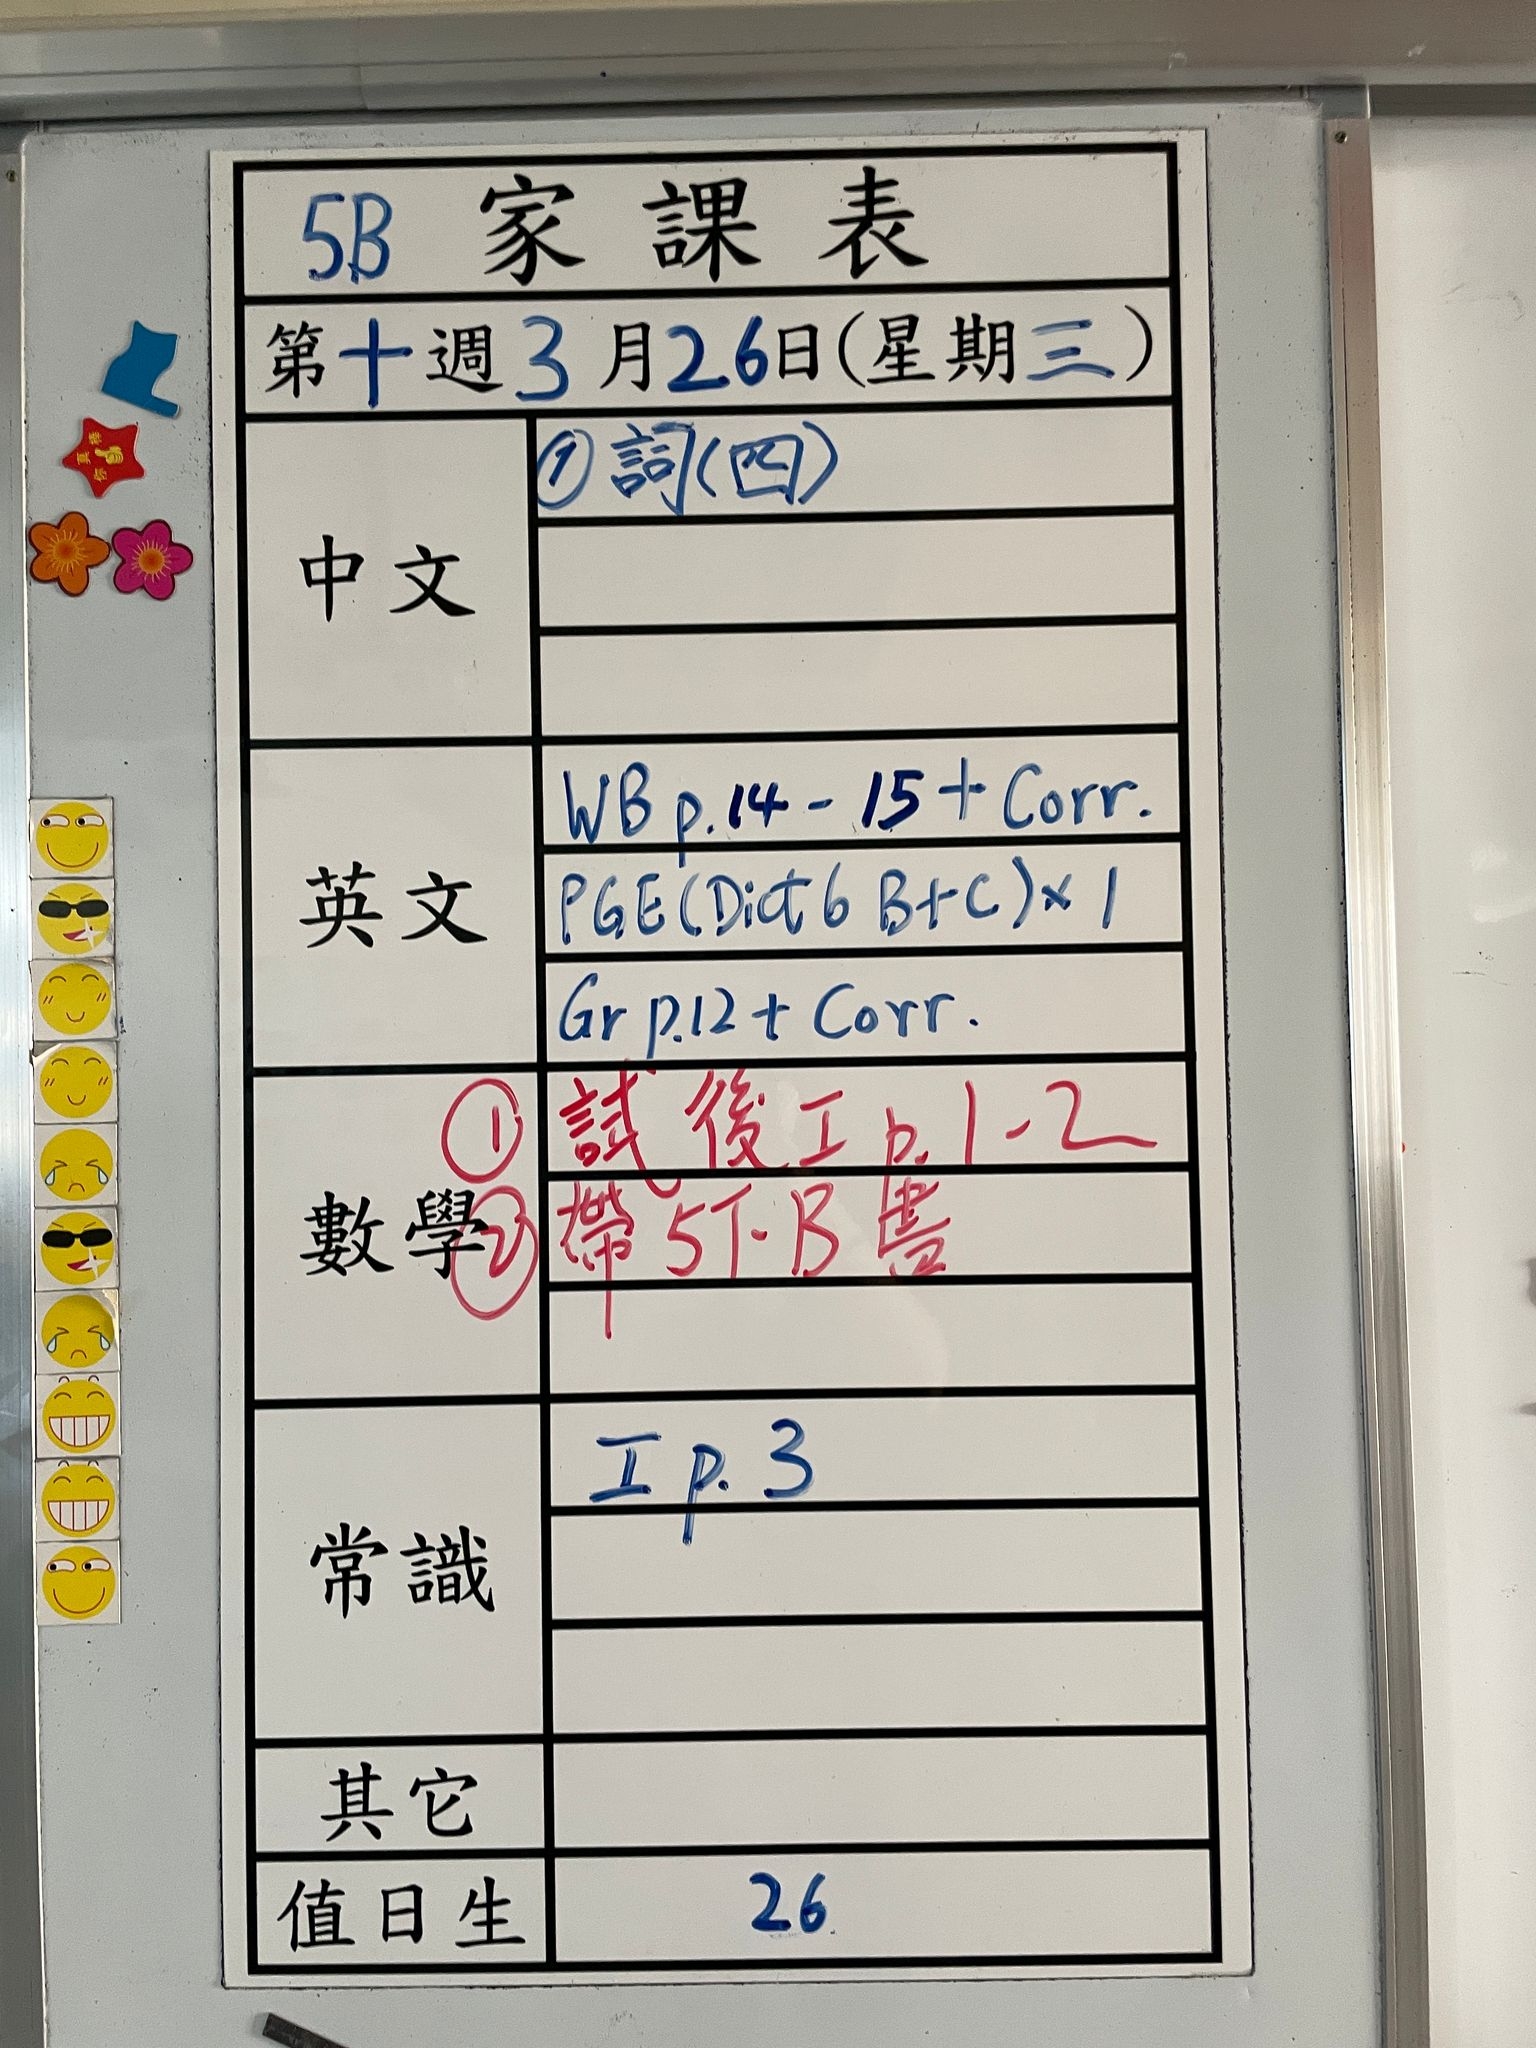 5B 家課表
第十週3月26日(星期三)
中文
①詞(四)
英文
WB p.14-15+Corr.
PGE(Dict 6 B+C)×1
Gr p.12+ Corr.
數學
① 試後工 p.1-2
② 帶 5T-B 書
常識
工 p.3
其它
值日生
26